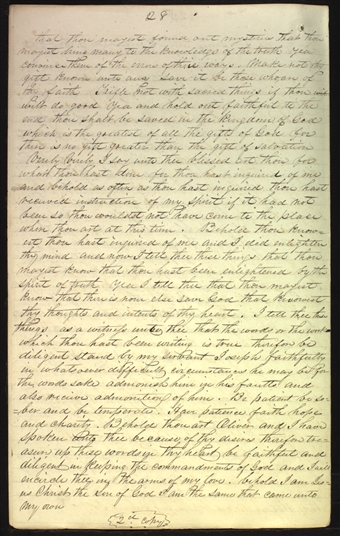 28
that thou mayest found out mysteries that thou
mayest bring many to the knowledge of the truth yea
convince them of the error of their ways. Make not thy
gift known unto any save it be those who are of
thy faith Trifle not with sacred things if thou wilt
do good yea and hold out faithful to the
end thou shalt be saved in the Kingdom of God
which is the greatest of all the gifts of God for
there is no gift greater than the gift of salvation
Verily Verily I say unto thee blessed art thou for
what thou hast done for thou hast inquired of me
and behold as often as thou hast inquired thou hast
received instruction of my spirit if it had not
been so thou wouldst not have come to the place
where thou art at this time. Behold thou know-
est thou hast inquired of me and I did enlighten
thy mind and now I tell thee these things that thou
mayest know that thou hast been enlightened by the
spirit of truth Yea I tell thee that thou mayest
know that there is none else save God that knowest
thy thoughts and intents of thy heart. I tell thee these
things as a witness unto thee that the words or the work
which thou hast been writing is true therefore be
diligent stand by my servant Joseph faithfully
in whatsoever difficult circumstances he may be for
the words sake admonish him in his faults and
also receive admonition of him. Be patient be so-
ber and be temperate. Have patience faith hope
and charity. Behold thou art Oliver and I have
spoken unto thee because of thy desires therefore trea-
sure up these words in thy heart be faithful and
diligent in keeping the commandments of God and I will
encircle thee in the arms of my love. behold I am Je-
sus Christ the son of God I am the same that came unto
my own
(2d copy)